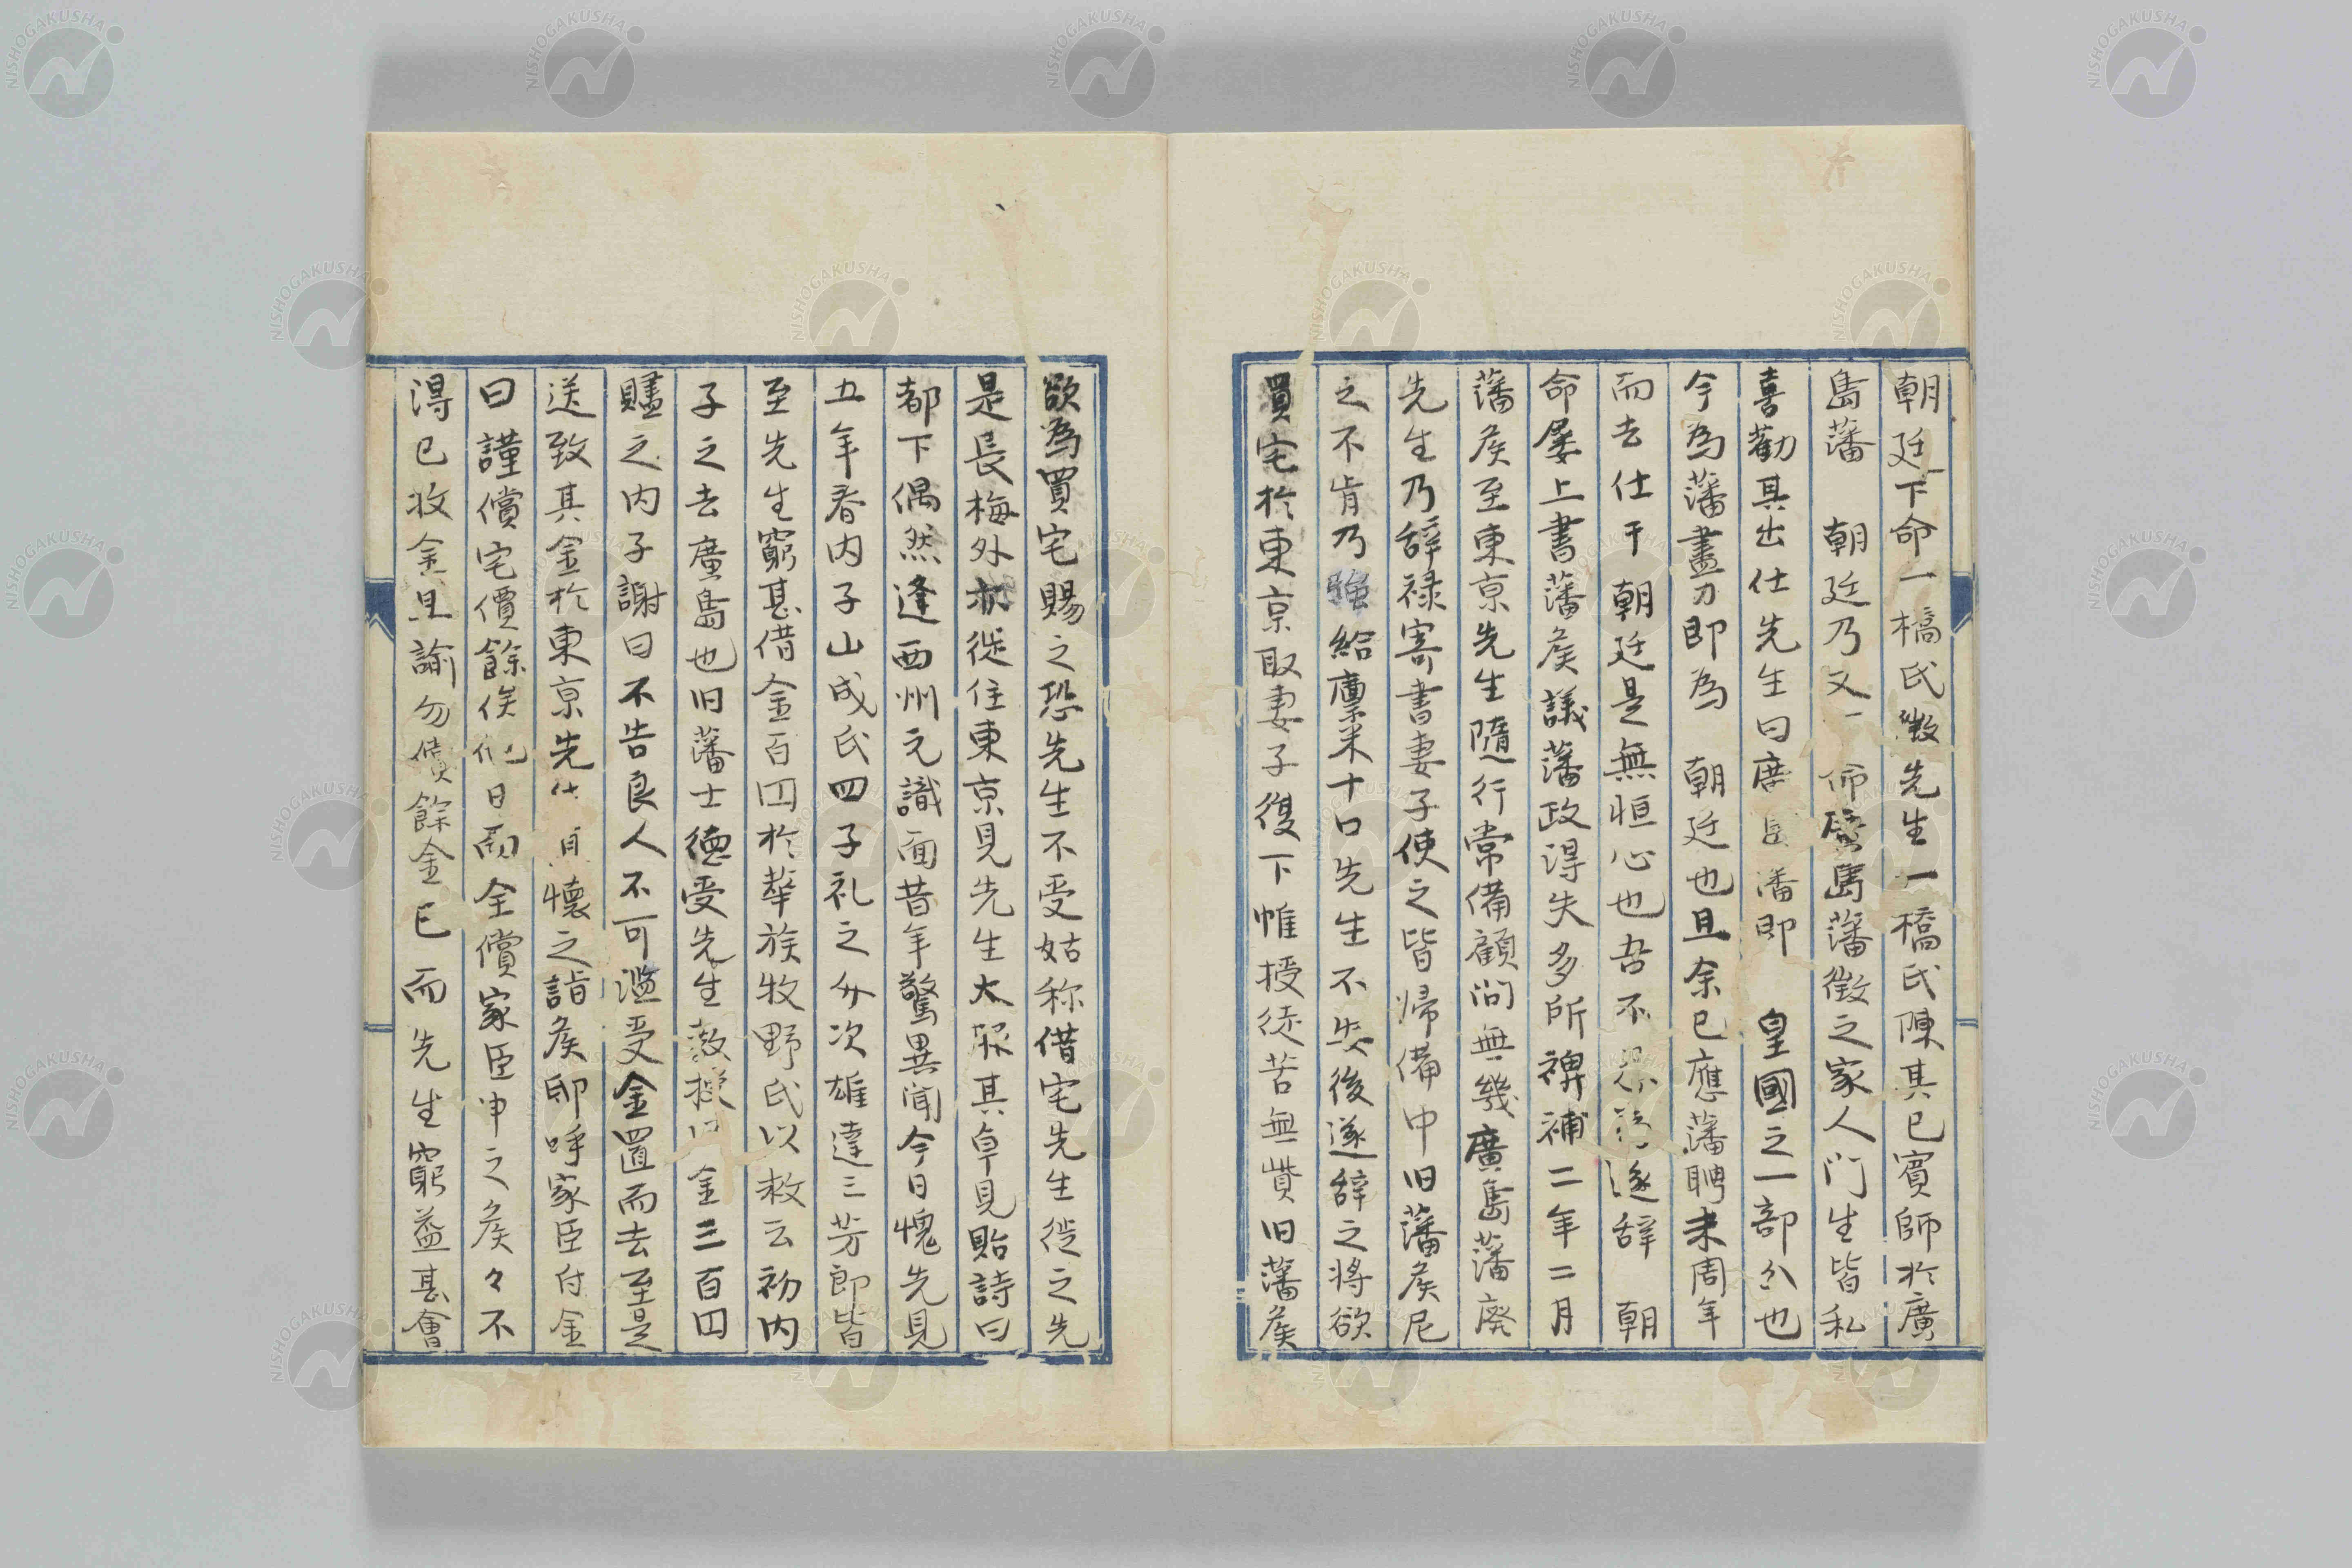 朝廷下命一橋氏徴先生一橋氏陳其已賓師於廣
島藩　朝廷乃又命廣島藩徴之家人門生皆私
喜勸其出仕先生曰廣島藩即　皇國之一部分也
今為藩盡力即為　朝廷也且余已應藩聘未周年
而去仕于朝廷是無恒心也吾不　遂辞　朝
命屡上書藩矦議藩政得失多所裨補二年二月
藩矦至東京先生隨行常備顧問無幾廣島藩廃
先生乃辞禄寄書妻子使之皆帰備中旧藩矦尼
之不肯乃強給廩米十口先生不　後遂辞之将欲
買宅於東京取妻子復下帷授徒苦無貲旧藩矦
欲為買宅賜之恐先生不受姑称借宅先生徙之先
是長梅外亦徙住東京見先生大　其卓見貽詩曰
都下偶然逢西州元識面昔年驚異聞今日愧先見
五年春内子山成氏四子礼之弁次雄達三芳郎皆
至先生窮甚借金百四於華族牧野氏以救云初内
子之去廣島也旧藩士徳受先生教授　金三百四
贐之内子謝曰不告良人不可濫受金置而去至是
送致其金於東京先　懐之詣矦邸呼家臣付金
曰謹償宅價餘俟他日而全償家臣申之矦々不
得已收金且諭勿償餘金已而先生窮益甚會
NISHOGAKUSHA